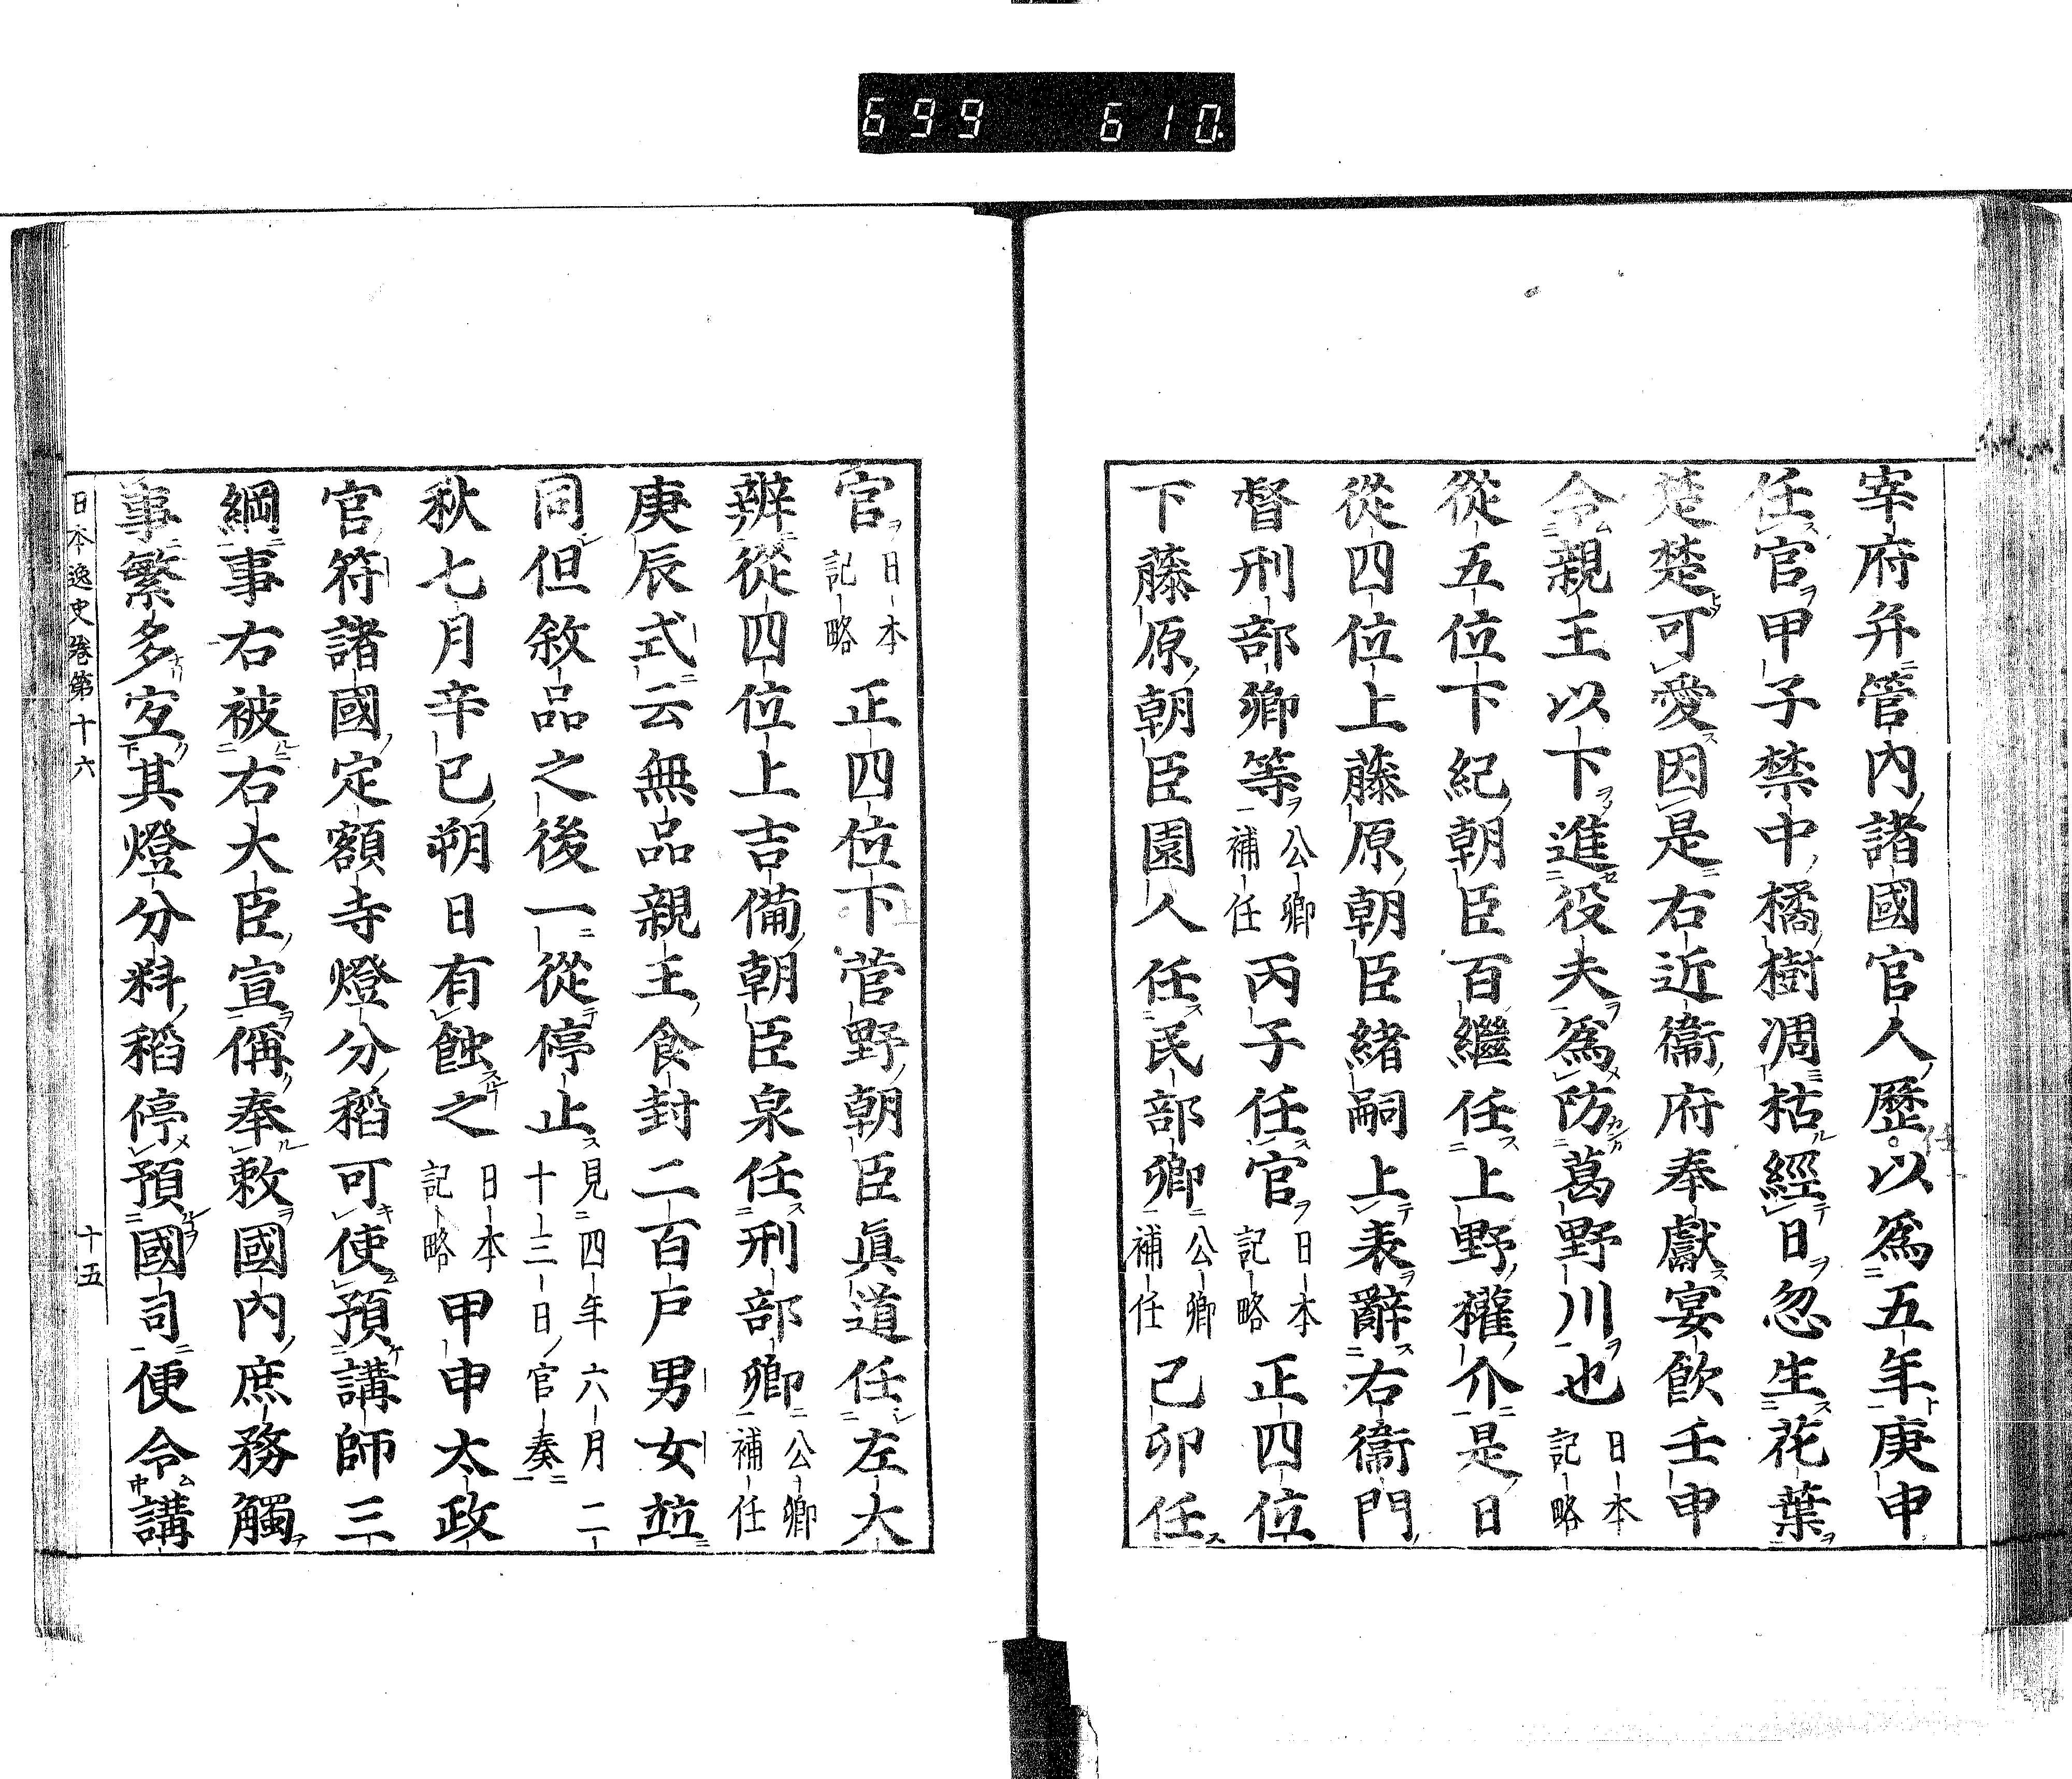 699 610.
宰府并管内諸國官人歷以爲五年庚申
任官甲子禁中橘樹凋枯經日忽生花葉
楚楚可愛因是右近衞府奉獻宴飮壬申
令親王以下進役夫爲防葛野川也日本記略
從五位下紀朝臣百繼任上野權介是日
從四位上藤原朝臣緒嗣上表辭右衞門
督刑部卿等公卿補任丙子任官日本記略正四位
下藤原朝臣園人任民部卿公卿補任己卯任
官日本記略正四位下菅野朝臣眞道任左大
辨從四位上吉備朝臣泉任刑部卿公卿補任
庚辰式云無品親王食封二百戸男女並
同但敘品之後一從停止見四年六月二十三日官奏
秋七月辛巳朔日有蝕之日本記略甲申太政
官符諸國定額寺燈分稻可使預講師三
綱事右被右大臣宣偁奉敕國内庶務觸
事繁多宜其燈分料稻停預國司便令講
日本逸史卷第十六 十五